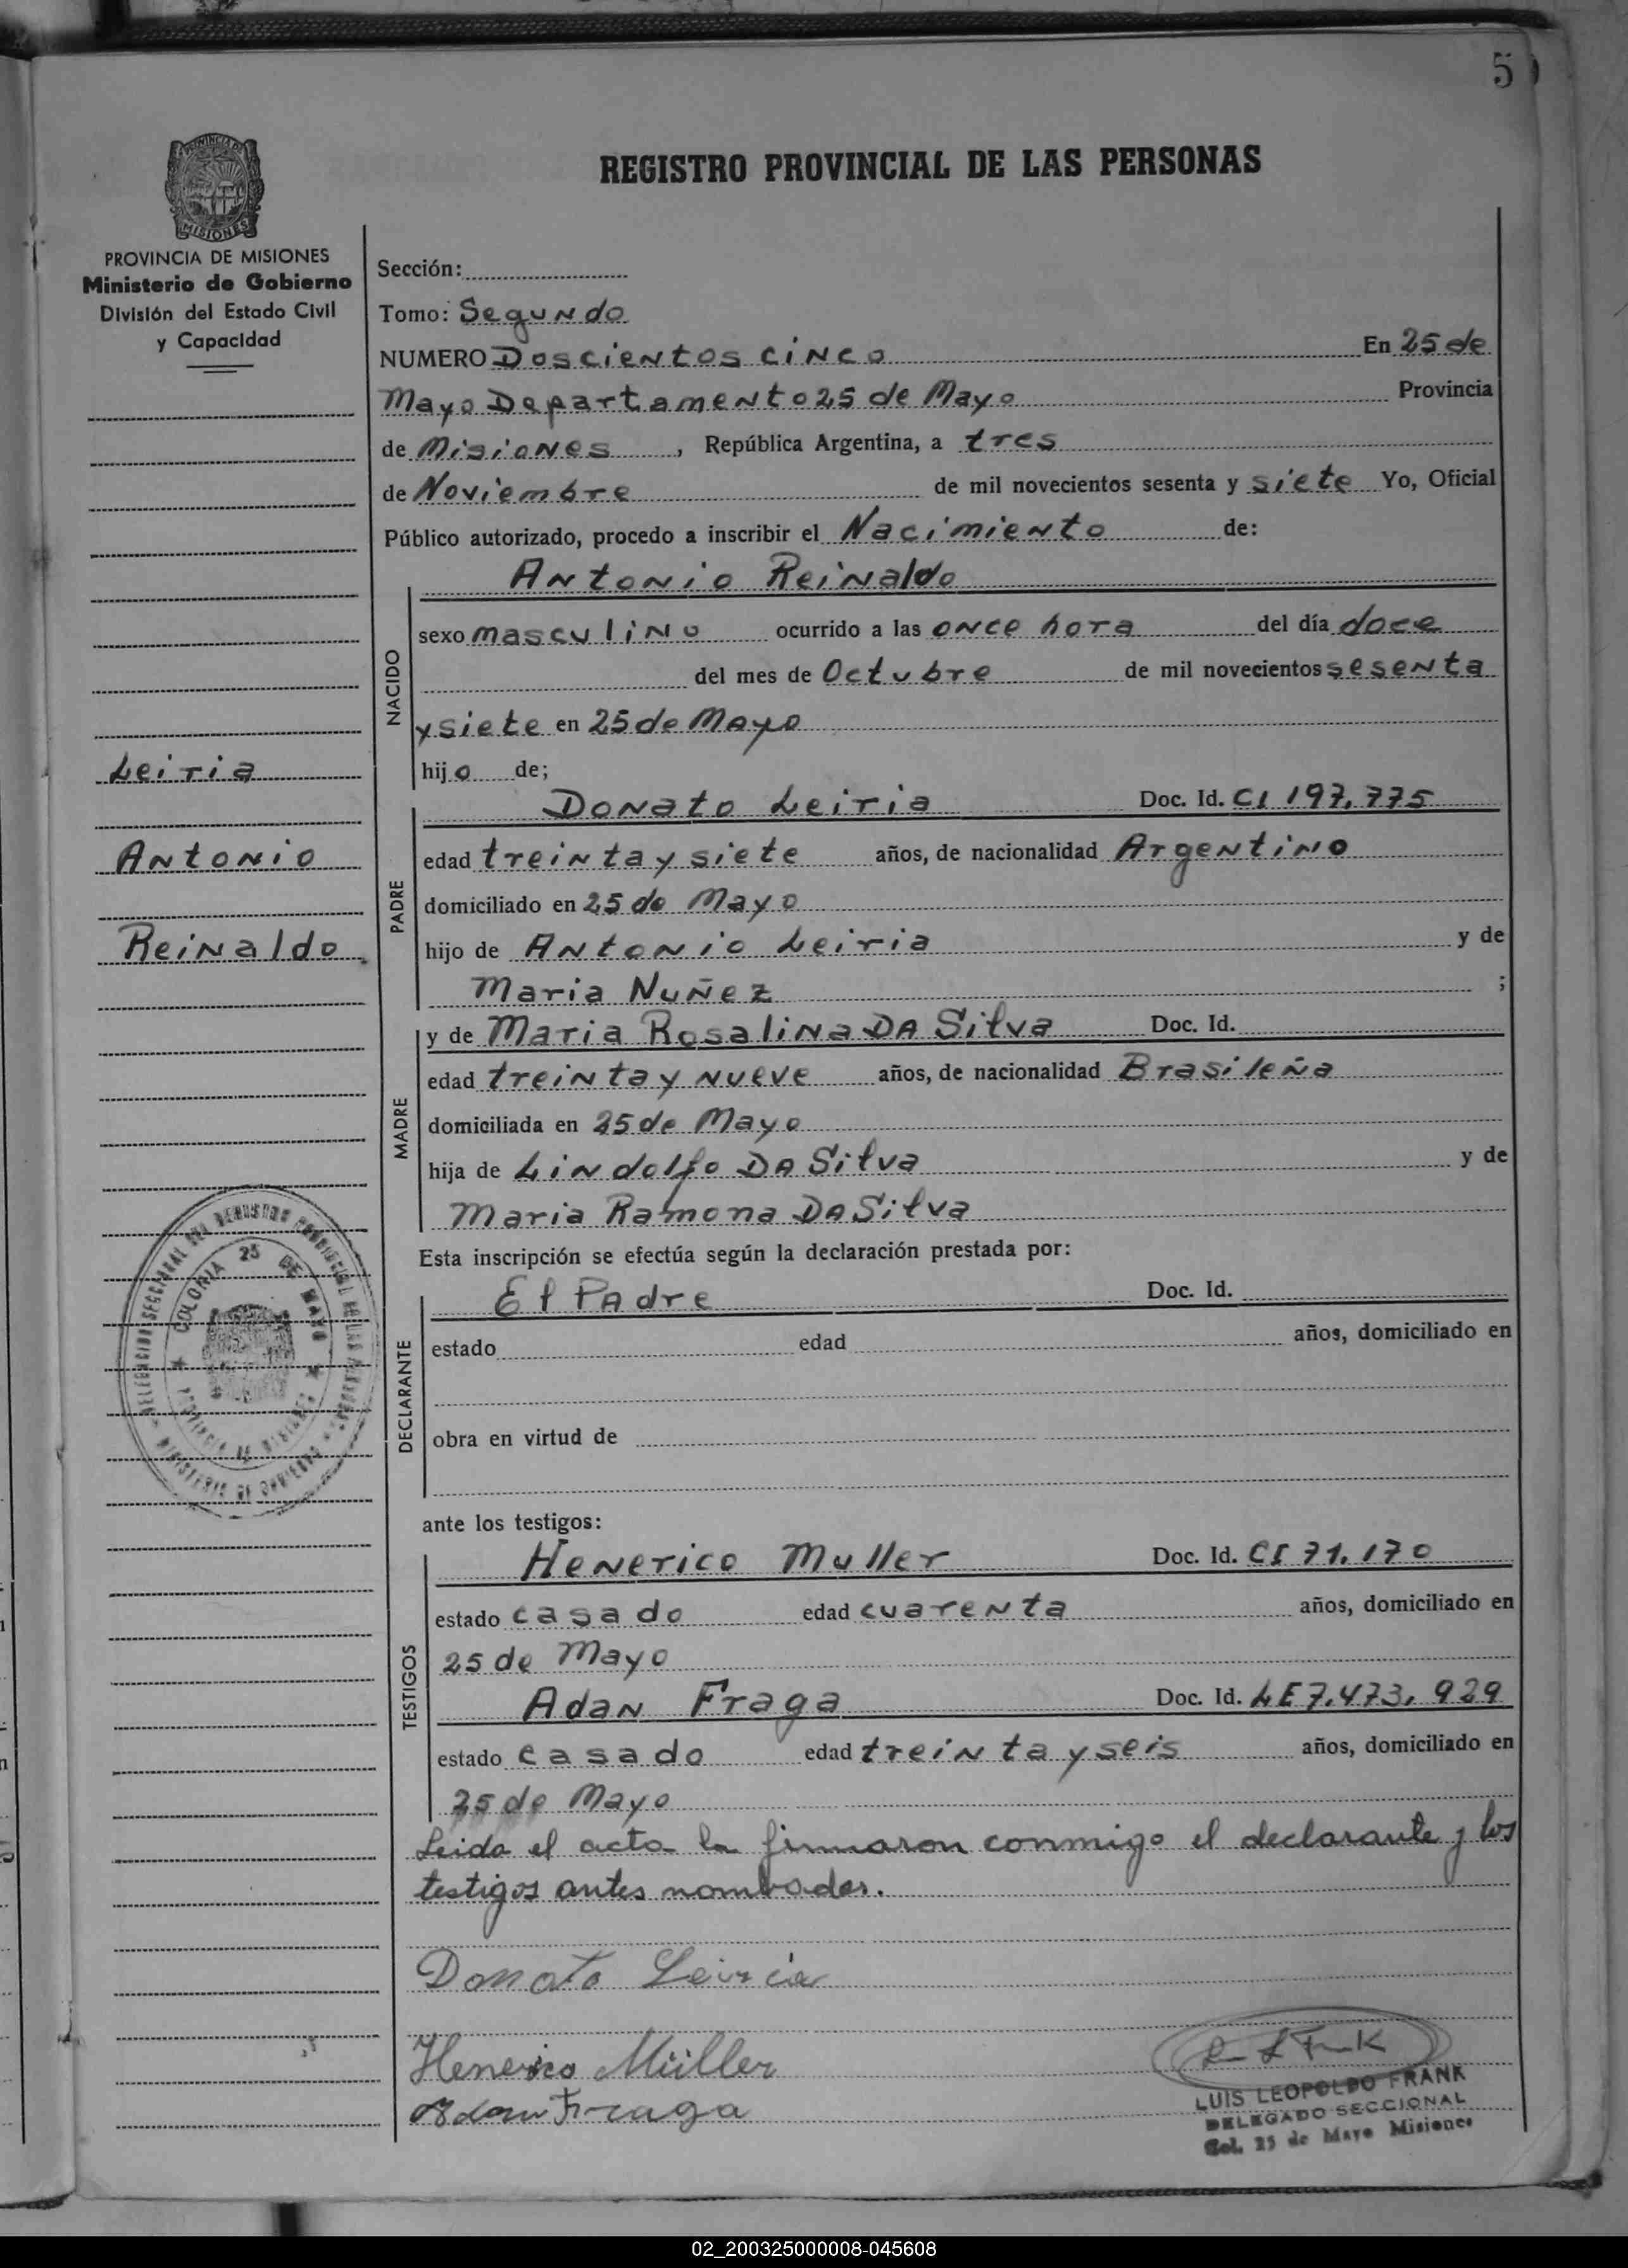 5
REGISTRO PROVINCIAL DE LAS PERSONAS
PROVINCIA DE MISIONES
Ministerio de Gobierno
División del Estado Civil
y Capacidad
Leiria
Antonio
Reinaldo
Sección:
Tomo: Segundo
NUMERO Doscientos cinco En 25 de
Mayo Departamento 25 de Mayo Provincia
de Misiones, República Argentina, a tres
de Noviembre de mil novecientos sesenta y siete Yo, Oficial
Público autorizado, procedo a inscribir el Nacimiento de:
Antonio Reinaldo
NACIDO
sexo masculino ocurrido a las once hora del día doce
del mes de Octubre de mil novecientos sesenta
y siete en 25 de Mayo
hijo de;
PADRE
Donato Leiria Doc. Id. CI 197.775
edad treinta y siete años, de nacionalidad Argentino
domiciliado en 25 de Mayo
hijo de Antonio Leiria y de
Maria Nuñez ;
MADRE
y de Maria Rosalina DA Silva Doc. Id.
edad treinta y nueve años, de nacionalidad Brasileña
domiciliada en 25 de Mayo
hija de Lindolfo DA Silva y de
Maria Ramona DA Silva
Esta inscripción se efectúa según la declaración prestada por:
DECLARANTE
El PAdre Doc. Id.
estado edad años, domiciliado en
obra en virtud de
ante los testigos:
TESTIGOS
Henerico Muller Doc. Id. CI 71.170
estado casado edad cuarenta años, domiciliado en
25 de Mayo
Adan Fraga Doc. Id. LE 7.473.929
estado casado edad treinta y seis años, domiciliado en
25 de Mayo
Leida el acta la firmaron conmigo el declarante y los
testigos antes nombrados.
Donato Leiria
Henerico Müller
Adan Fraga
LUIS LEOPOLDO FRANK
DELEGADO SECCIONAL
Col. 25 de Mayo Misiones
DELEGACION SECCIONAL DEL REGISTRO PROVINCIAL DE LAS PERSONAS
MINISTERIO DE GOBIERNO
COLONIA 25 DE MAYO
PROVINCIA DE MISIONES
MISIONES
02_200325000008-045608